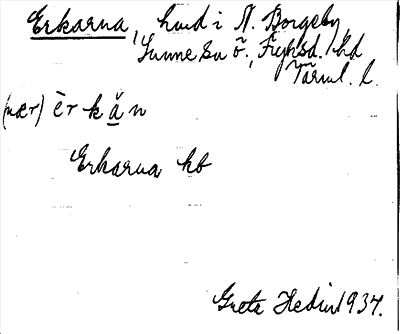 Erkarna, hmd i N. Borgeby,
Sunne sn ö., Fryksd. hd
Värml. l.
(nær) è r k ǎ n
Erkarna kb
Greta Hedin 1937.